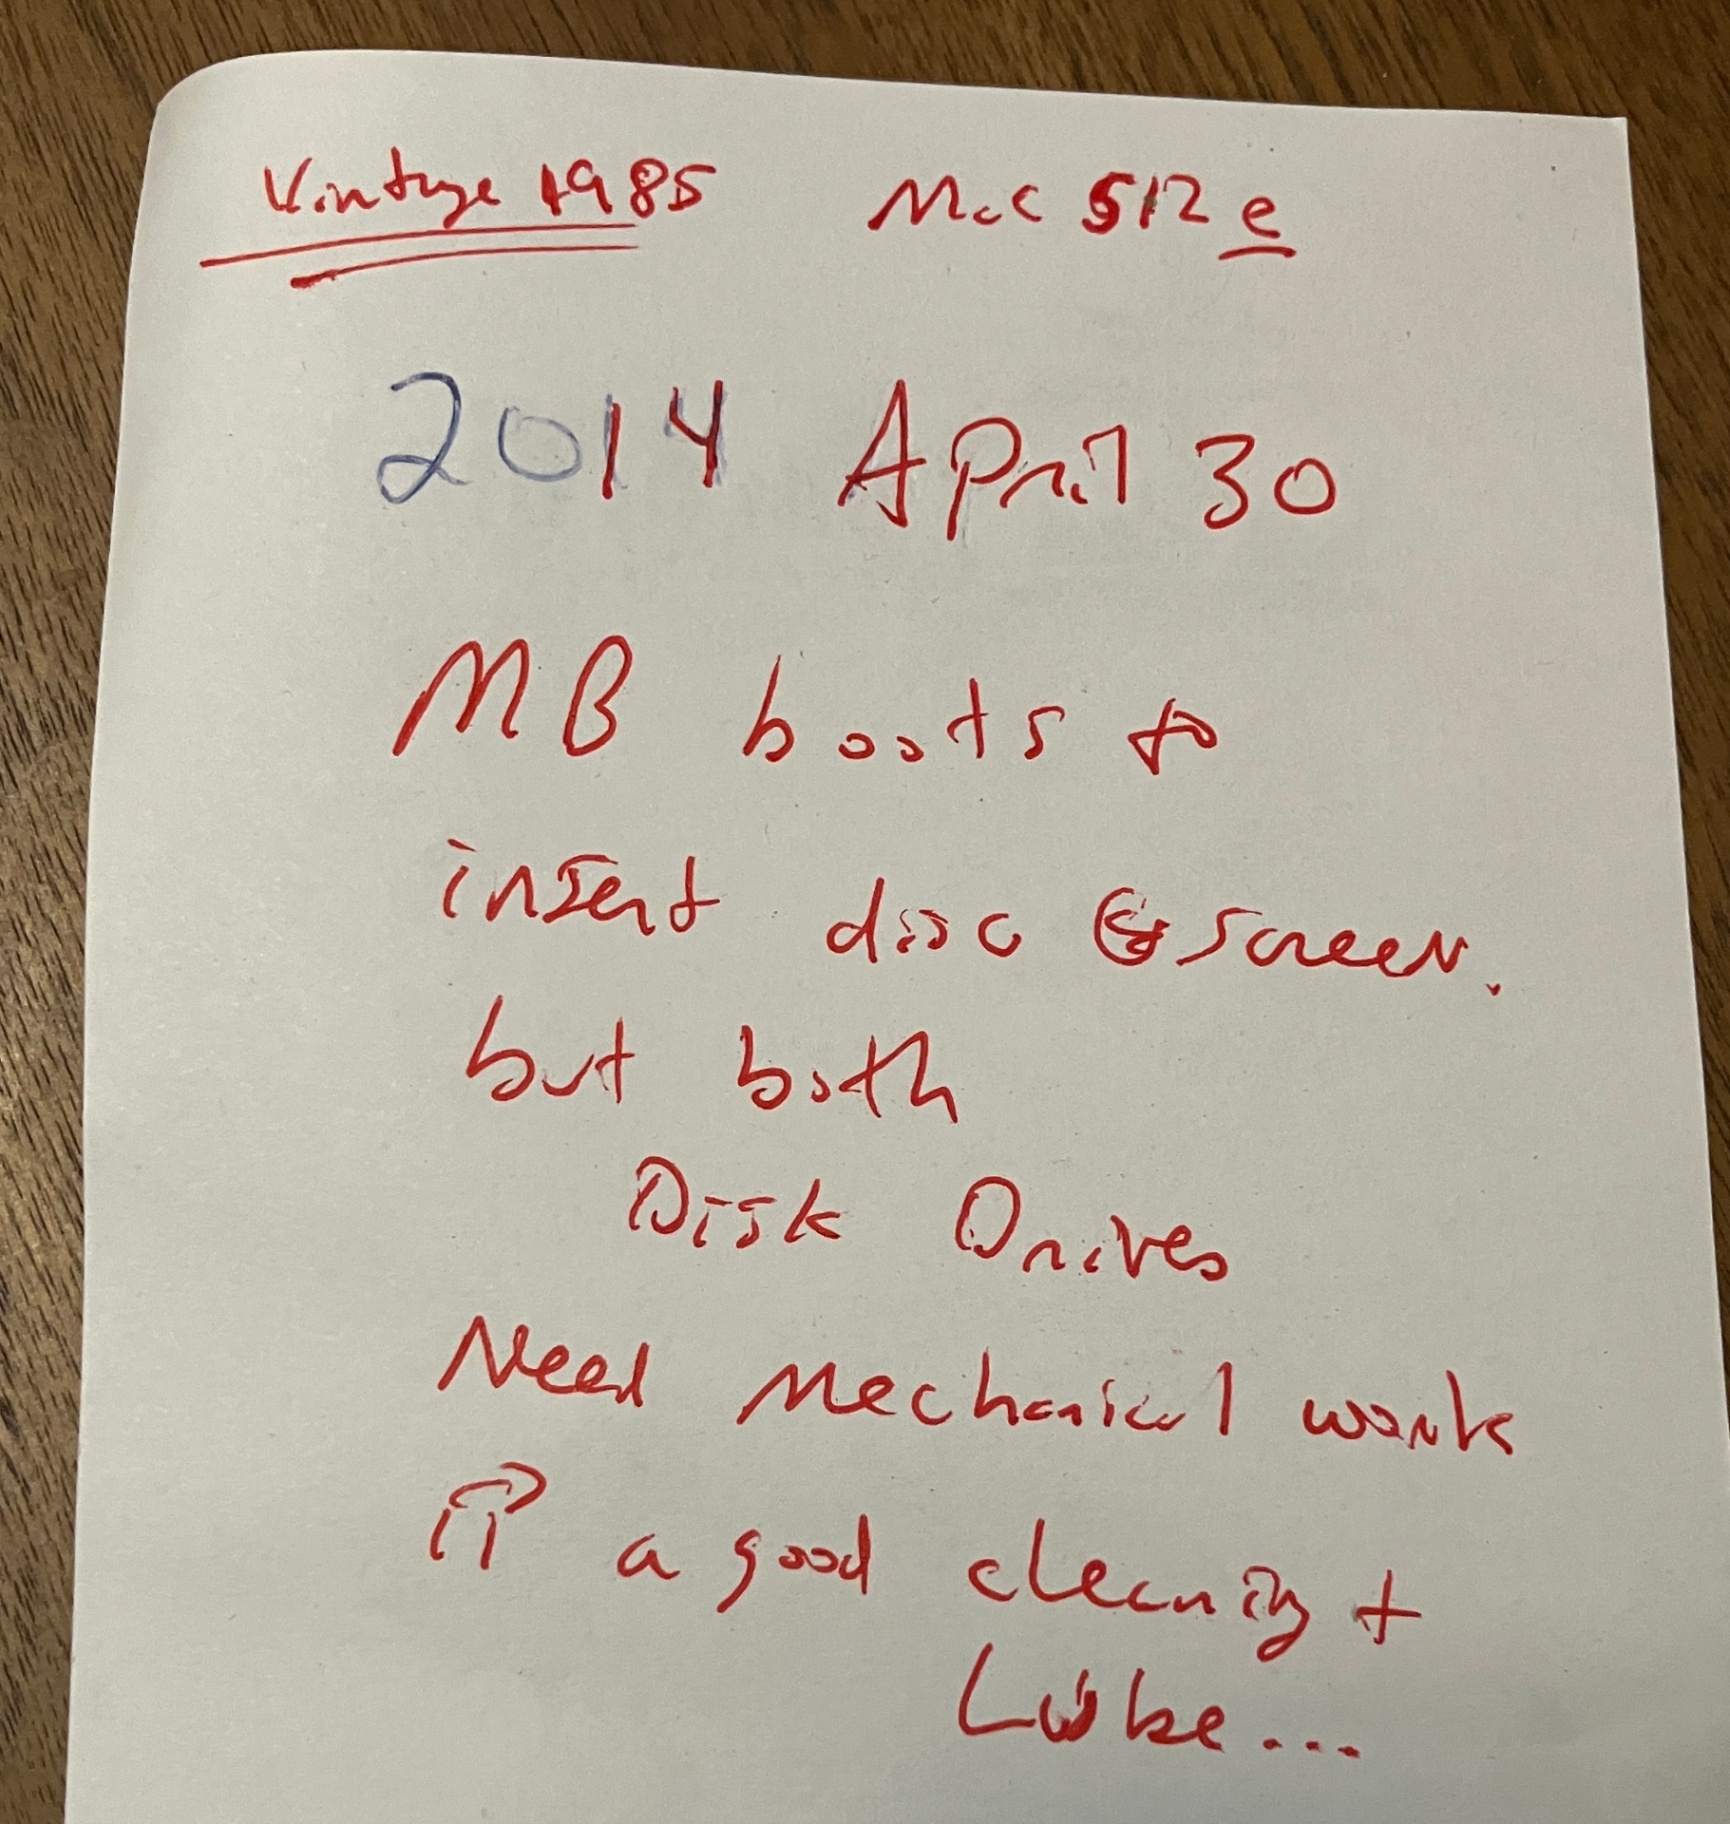 Vintage 1985 Mac 512e
2014 April 30
MB boots to
insert disc screen.
but both
Disk Drives
Need Mechanical work
a good cleaning +
Lube...